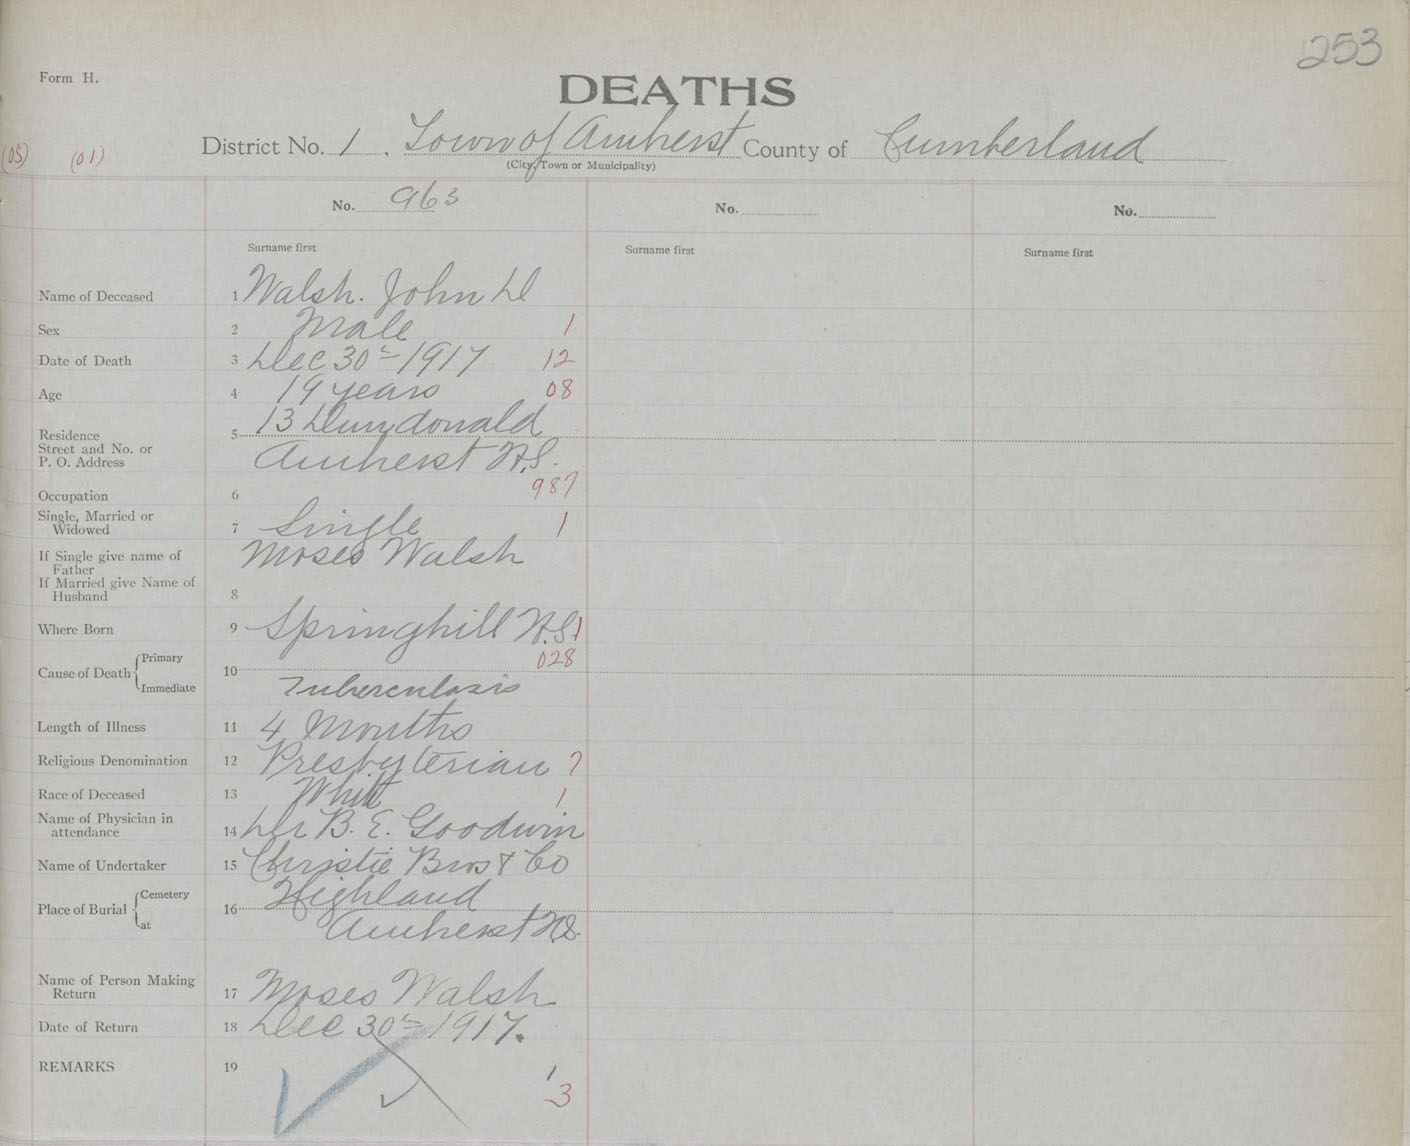 253
Form H.
DEATHS
(05) (01) District No. 1. Town of Amherst County of Cumberland
(City, Town or Municipality)
No. 963 No. No.
Surname first Surname first Surname first
Name of Deceased 1 Walsh. John D
Sex 2 Male 1
Date of Death 3 Dec 30th 1917 12
Age 4 19 years 08
13 Dundonald
Residence 5
Street and No. or
P. O. Address Amherst N.S.
987
Occupation 6
Single, Married or
Widowed 7 Single 1
If Single give name of Moses Walsh
Father
If Married give Name of
Husband 8
Where Born 9 Springhill N.S. 1
028
Cause of Death { Primary
10
Immediate Tuberculosis
Length of Illness 11 4 Months
Religious Denomination 12 Presbyterian 7
Race of Deceased 13 White 1
Name of Physician in
attendance 14 Dr B. E. Goodwin
Name of Undertaker 15 Christie Bros & Co
Place of Burial { Cemetery Highland
16
at Amherst N.S.
Name of Person Making
Return 17 Moses Walsh
Date of Return 18 Dec 30th 1917.
REMARKS 19
1
3